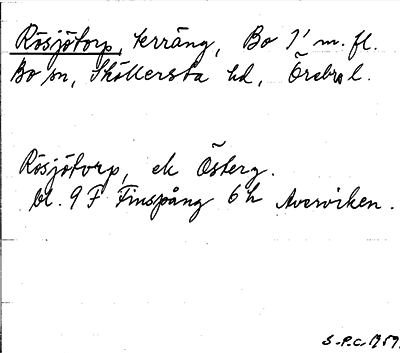 Rösjötorp, terräng, Bo 1' m. fl.
Bo sn, Sköllersta hd, Örebro l.
Rösjötorp, ek Österg.
bl. 9 F Finspång 6 h Averviken.
S.P.C. 1959